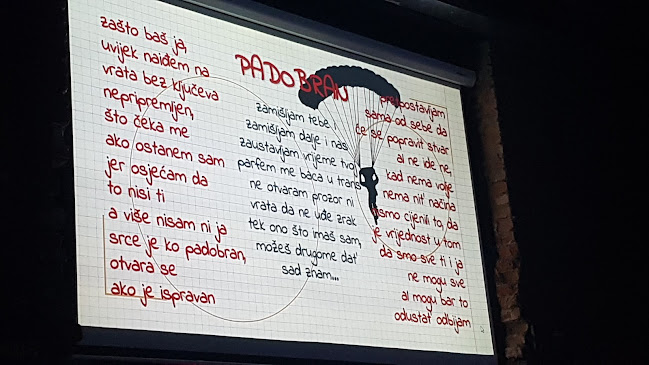 PADOBRAN
zašto baš ja,
uvijek naiđem na
vrata bez ključeva
nepripremljen,
što čeka me
ako ostanem sam
jer osjećam da
to nisi ti
a više nisam ni ja
srce je ko padobran,
otvara se
ako je ispravan
zamišljam tebe
zamišljam dalje i nas
zaustavljam vrijeme tvoj
parfem me baca u trans
ne otvaram prozor ni
vrata da ne uđe zrak
tek ono što imaš sam,
možeš drugome dat'
sad znam...
pretpostavljam
sama od sebe da
će se popravit stvar
al ne ide ne,
kad nema volje
nema nit' načina
nismo cijenili to, da
je vrijednost u tom
da smo sve ti i ja
ne mogu sve
al mogu bar to
odustat' odbijam